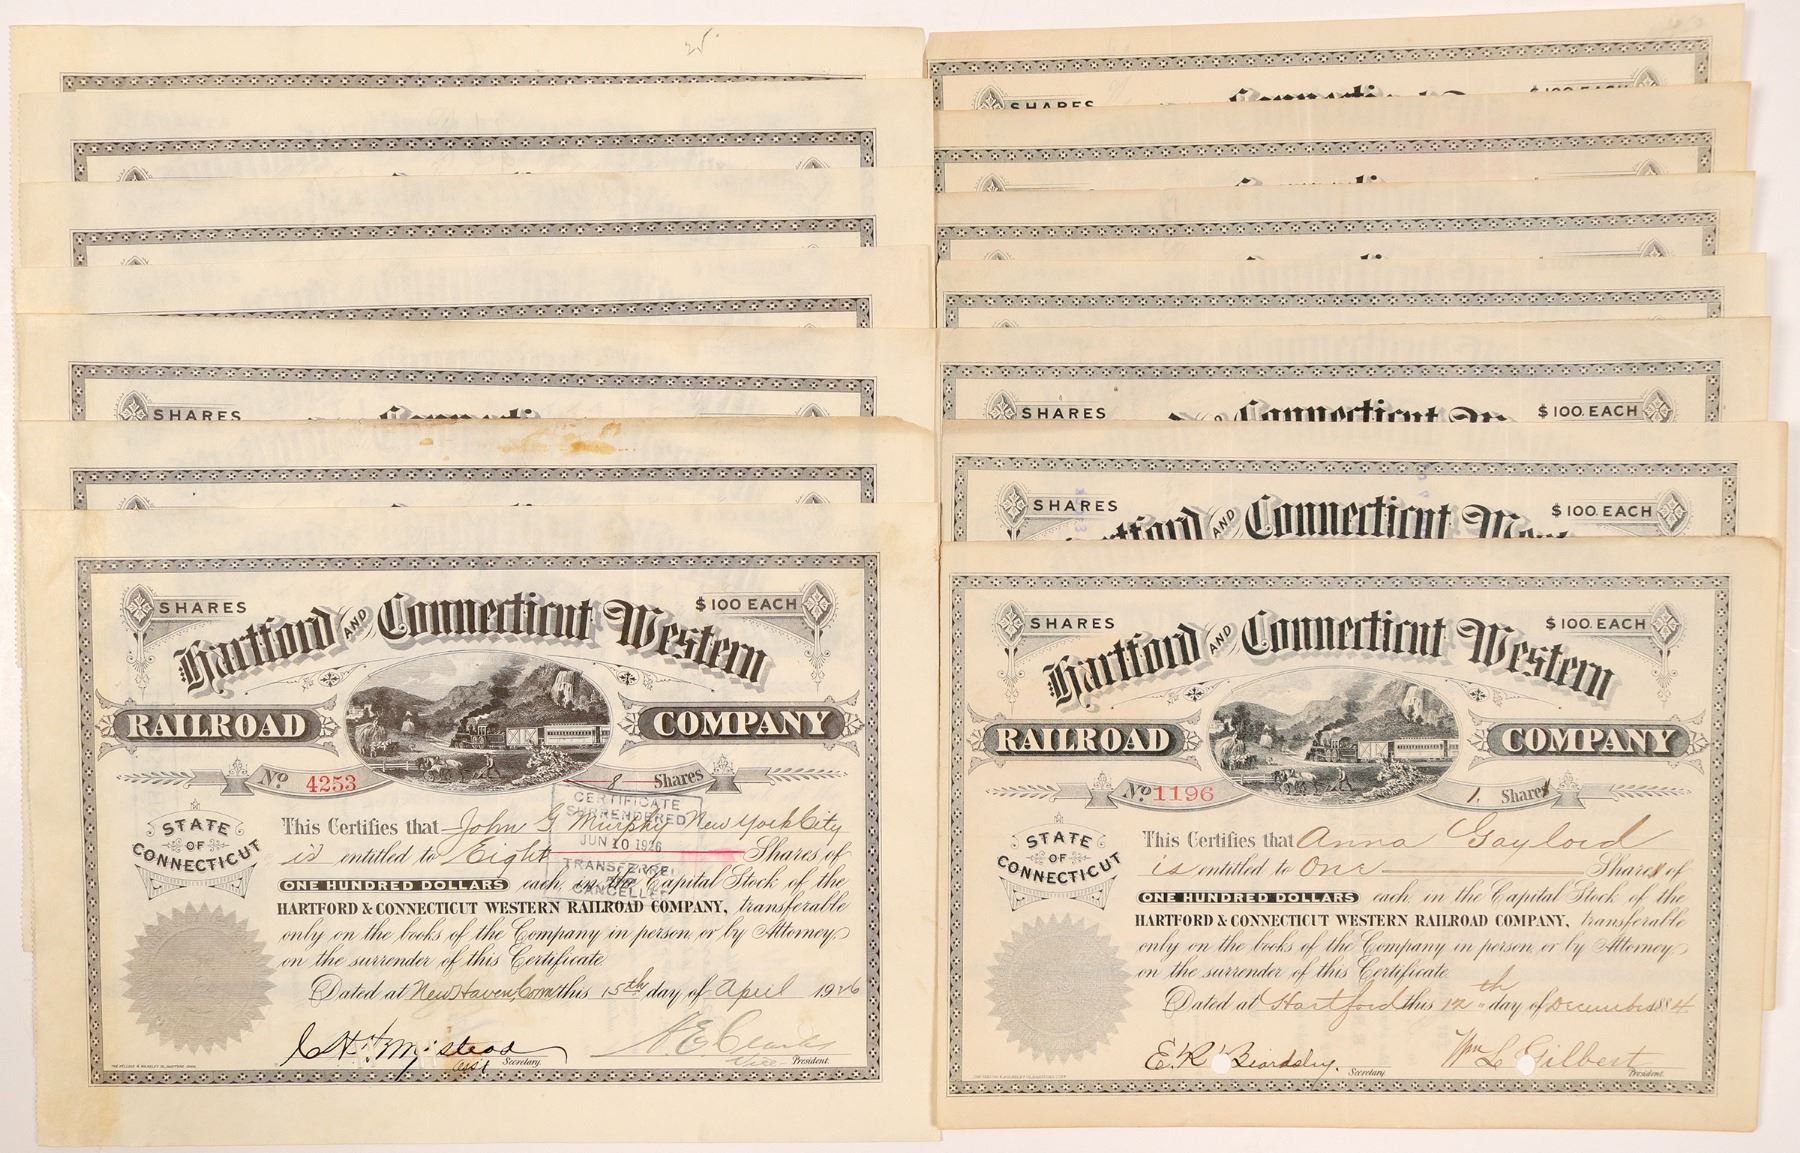 25
SHARES
Connecticut
SHARES
Connecticut
$100 EACH
Connecticut
Connecticut
SHARES
Connecticut
$100. EACH
SHARES
Hartford AND Connecticut Western
$100. EACH
SHARES
$100 EACH
Hartford AND Connecticut Western
RAILROAD COMPANY
No 4253
8 Shares
CERTIFICATE
SURRENDERED
JUN 10 1926
TRANSFERRED
AND
CANCELLED
STATE
OF
CONNECTICUT
This Certifies that John G Murphy New York City
is entitled to Eight Shares of
ONE HUNDRED DOLLARS each, in the Capital Stock of the
HARTFORD & CONNECTICUT WESTERN RAILROAD COMPANY, transferable
only on the books of the Company in person or by Attorney
on the surrender of this Certificate
Dated at New Haven, Conn this 15th day of April 1926
Asst Secretary.
Vice President.
SHARES
$100. EACH
Hartford AND Connecticut Western
RAILROAD COMPANY
No 1196
1. Share
STATE
OF
CONNECTICUT
This Certifies that Anna Gaylord
is entitled to One Share of
ONE HUNDRED DOLLARS each, in the Capital Stock of the
HARTFORD & CONNECTICUT WESTERN RAILROAD COMPANY, transferable
only on the books of the Company in person or by Attorney
on the surrender of this Certificate.
Dated at Hartford this 12th day of December 1884
E. R. Beardsley. Secretary
Wm L Gilbert President.